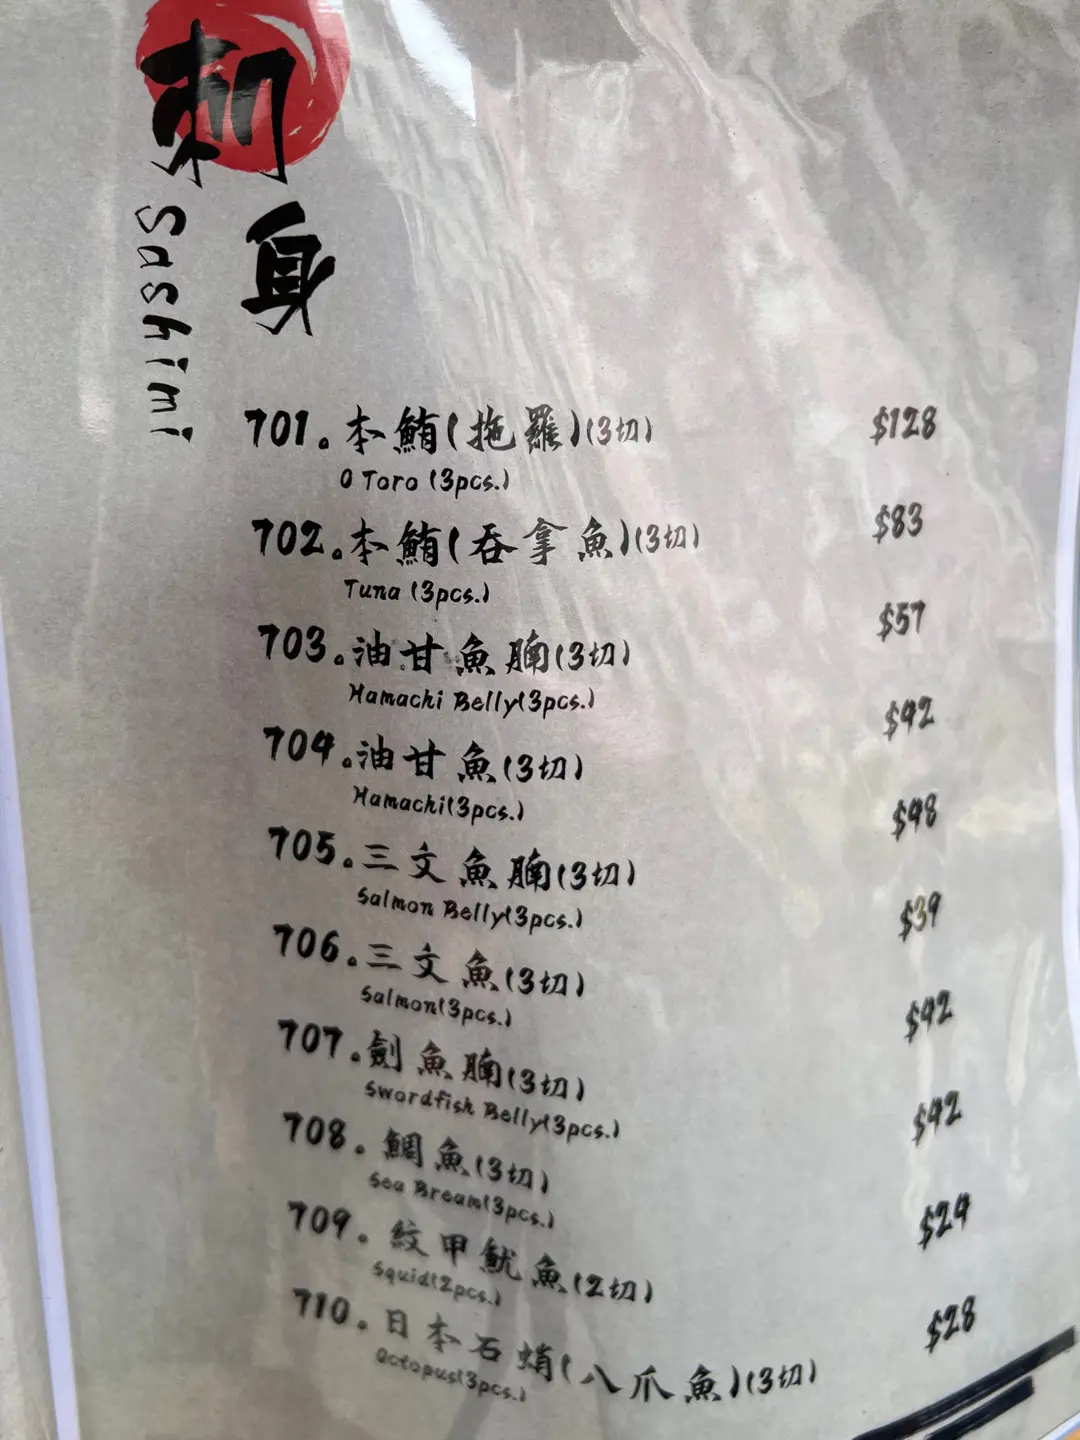 刺身
Sashimi
701.本鮪(拖羅)(3切) $128
O Toro (3pcs.)
702.本鮪(吞拿魚)(3切) $83
Tuna (3pcs.)
703.油甘魚腩(3切) $57
Hamachi Belly(3pcs.)
704.油甘魚(3切) $42
Hamachi(3pcs.)
705.三文魚腩(3切) $48
Salmon Belly(3pcs.)
706.三文魚(3切) $39
Salmon(3pcs.)
707.劍魚腩(3切) $42
Swordfish Belly(3pcs.)
708.鯛魚(3切) $42
Sea Bream(3pcs.)
709.紋甲魷魚(2切) $24
Squid(2pcs.)
710.日本石蛸(八爪魚)(3切) $28
Octopus(3pcs.)